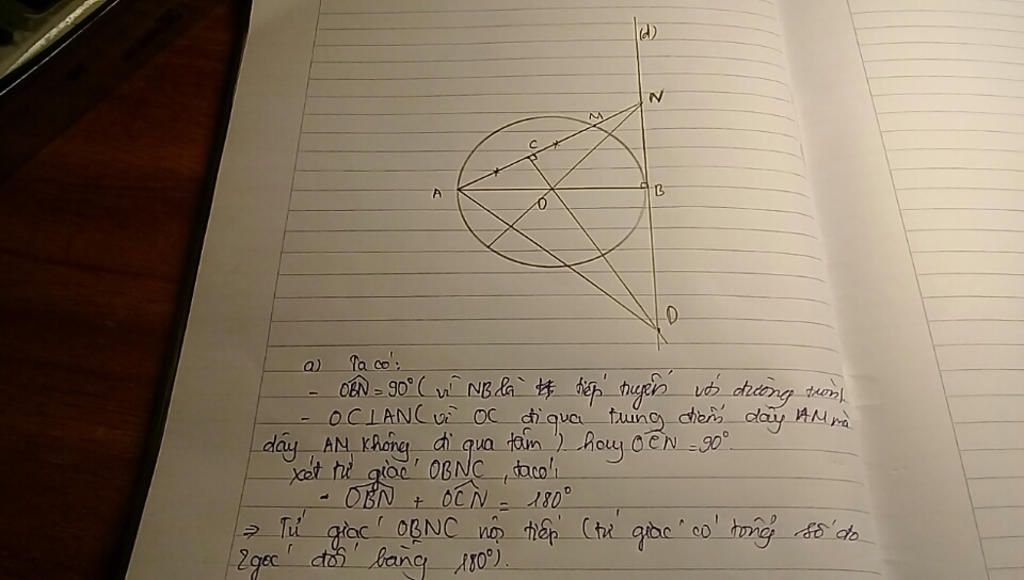 (d)
N
M
C
A
O
B
D
a) Ta có:
- OBN = 90° (vì NB là tiếp tuyến với đường tròn)
- OC⊥AN (vì OC đi qua trung điểm dây AM mà
dây AM không đi qua tâm) hay OCN = 90°
xét tứ giác OBNC, ta có:
- OBN + OCN = 180°
⇒ Tứ giác OBNC nội tiếp (tứ giác có tổng số đo
2 góc đối bằng 180°).